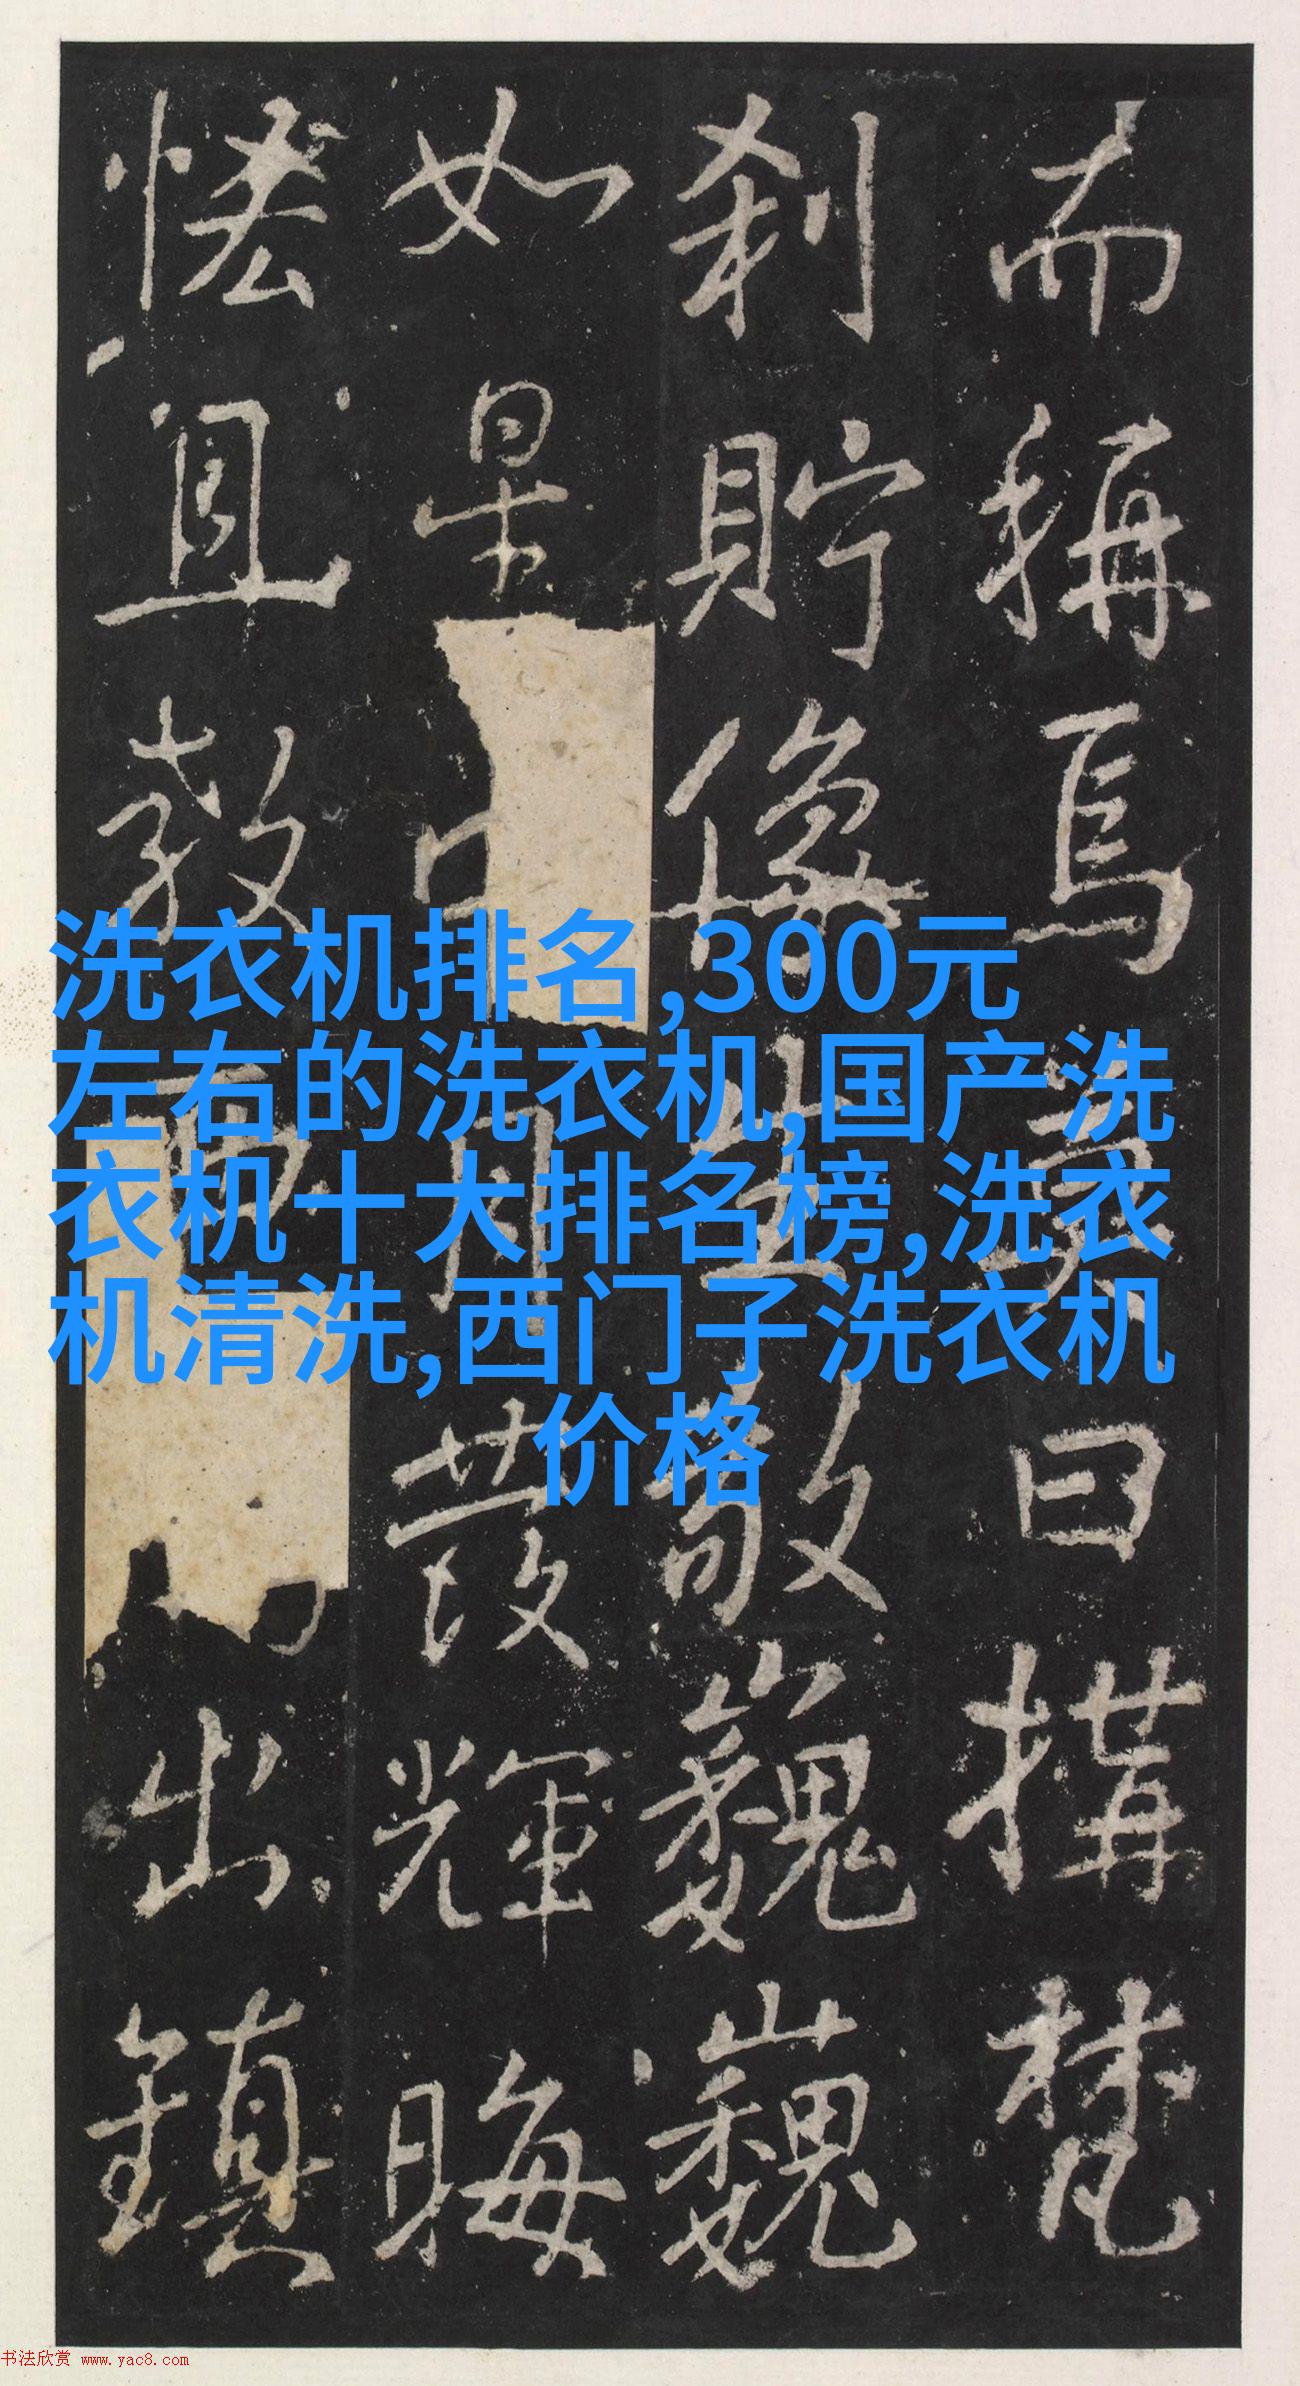 而稱焉爰曰搆梵
刹貯像
敬巍巍
如杲
月發輝晦
慌
且教
出鎮
洗衣机排名,300元
左右的洗衣机,国产洗
衣机十大排名榜,洗衣
机清洗,西门子洗衣机
价格
书法欣赏 www.yac8.com